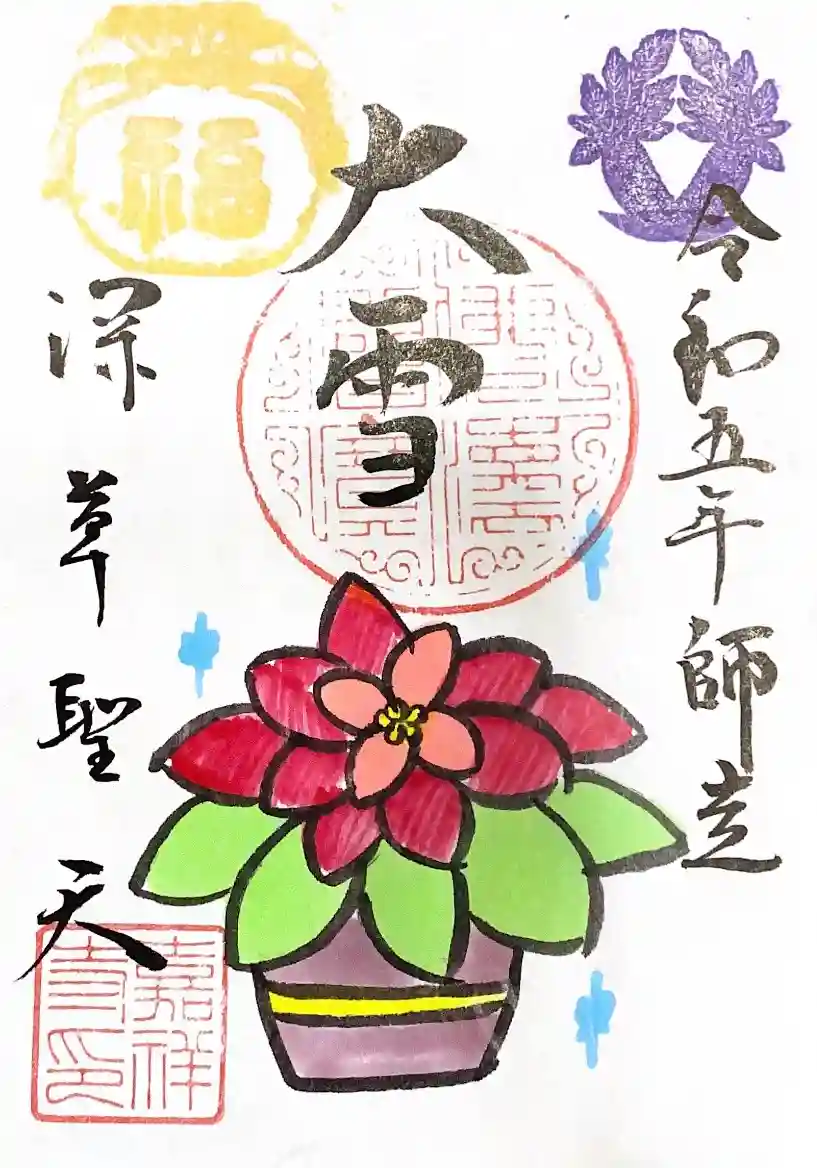 令和五年師走
大雪
深草聖天
福
嘉祥
寺印